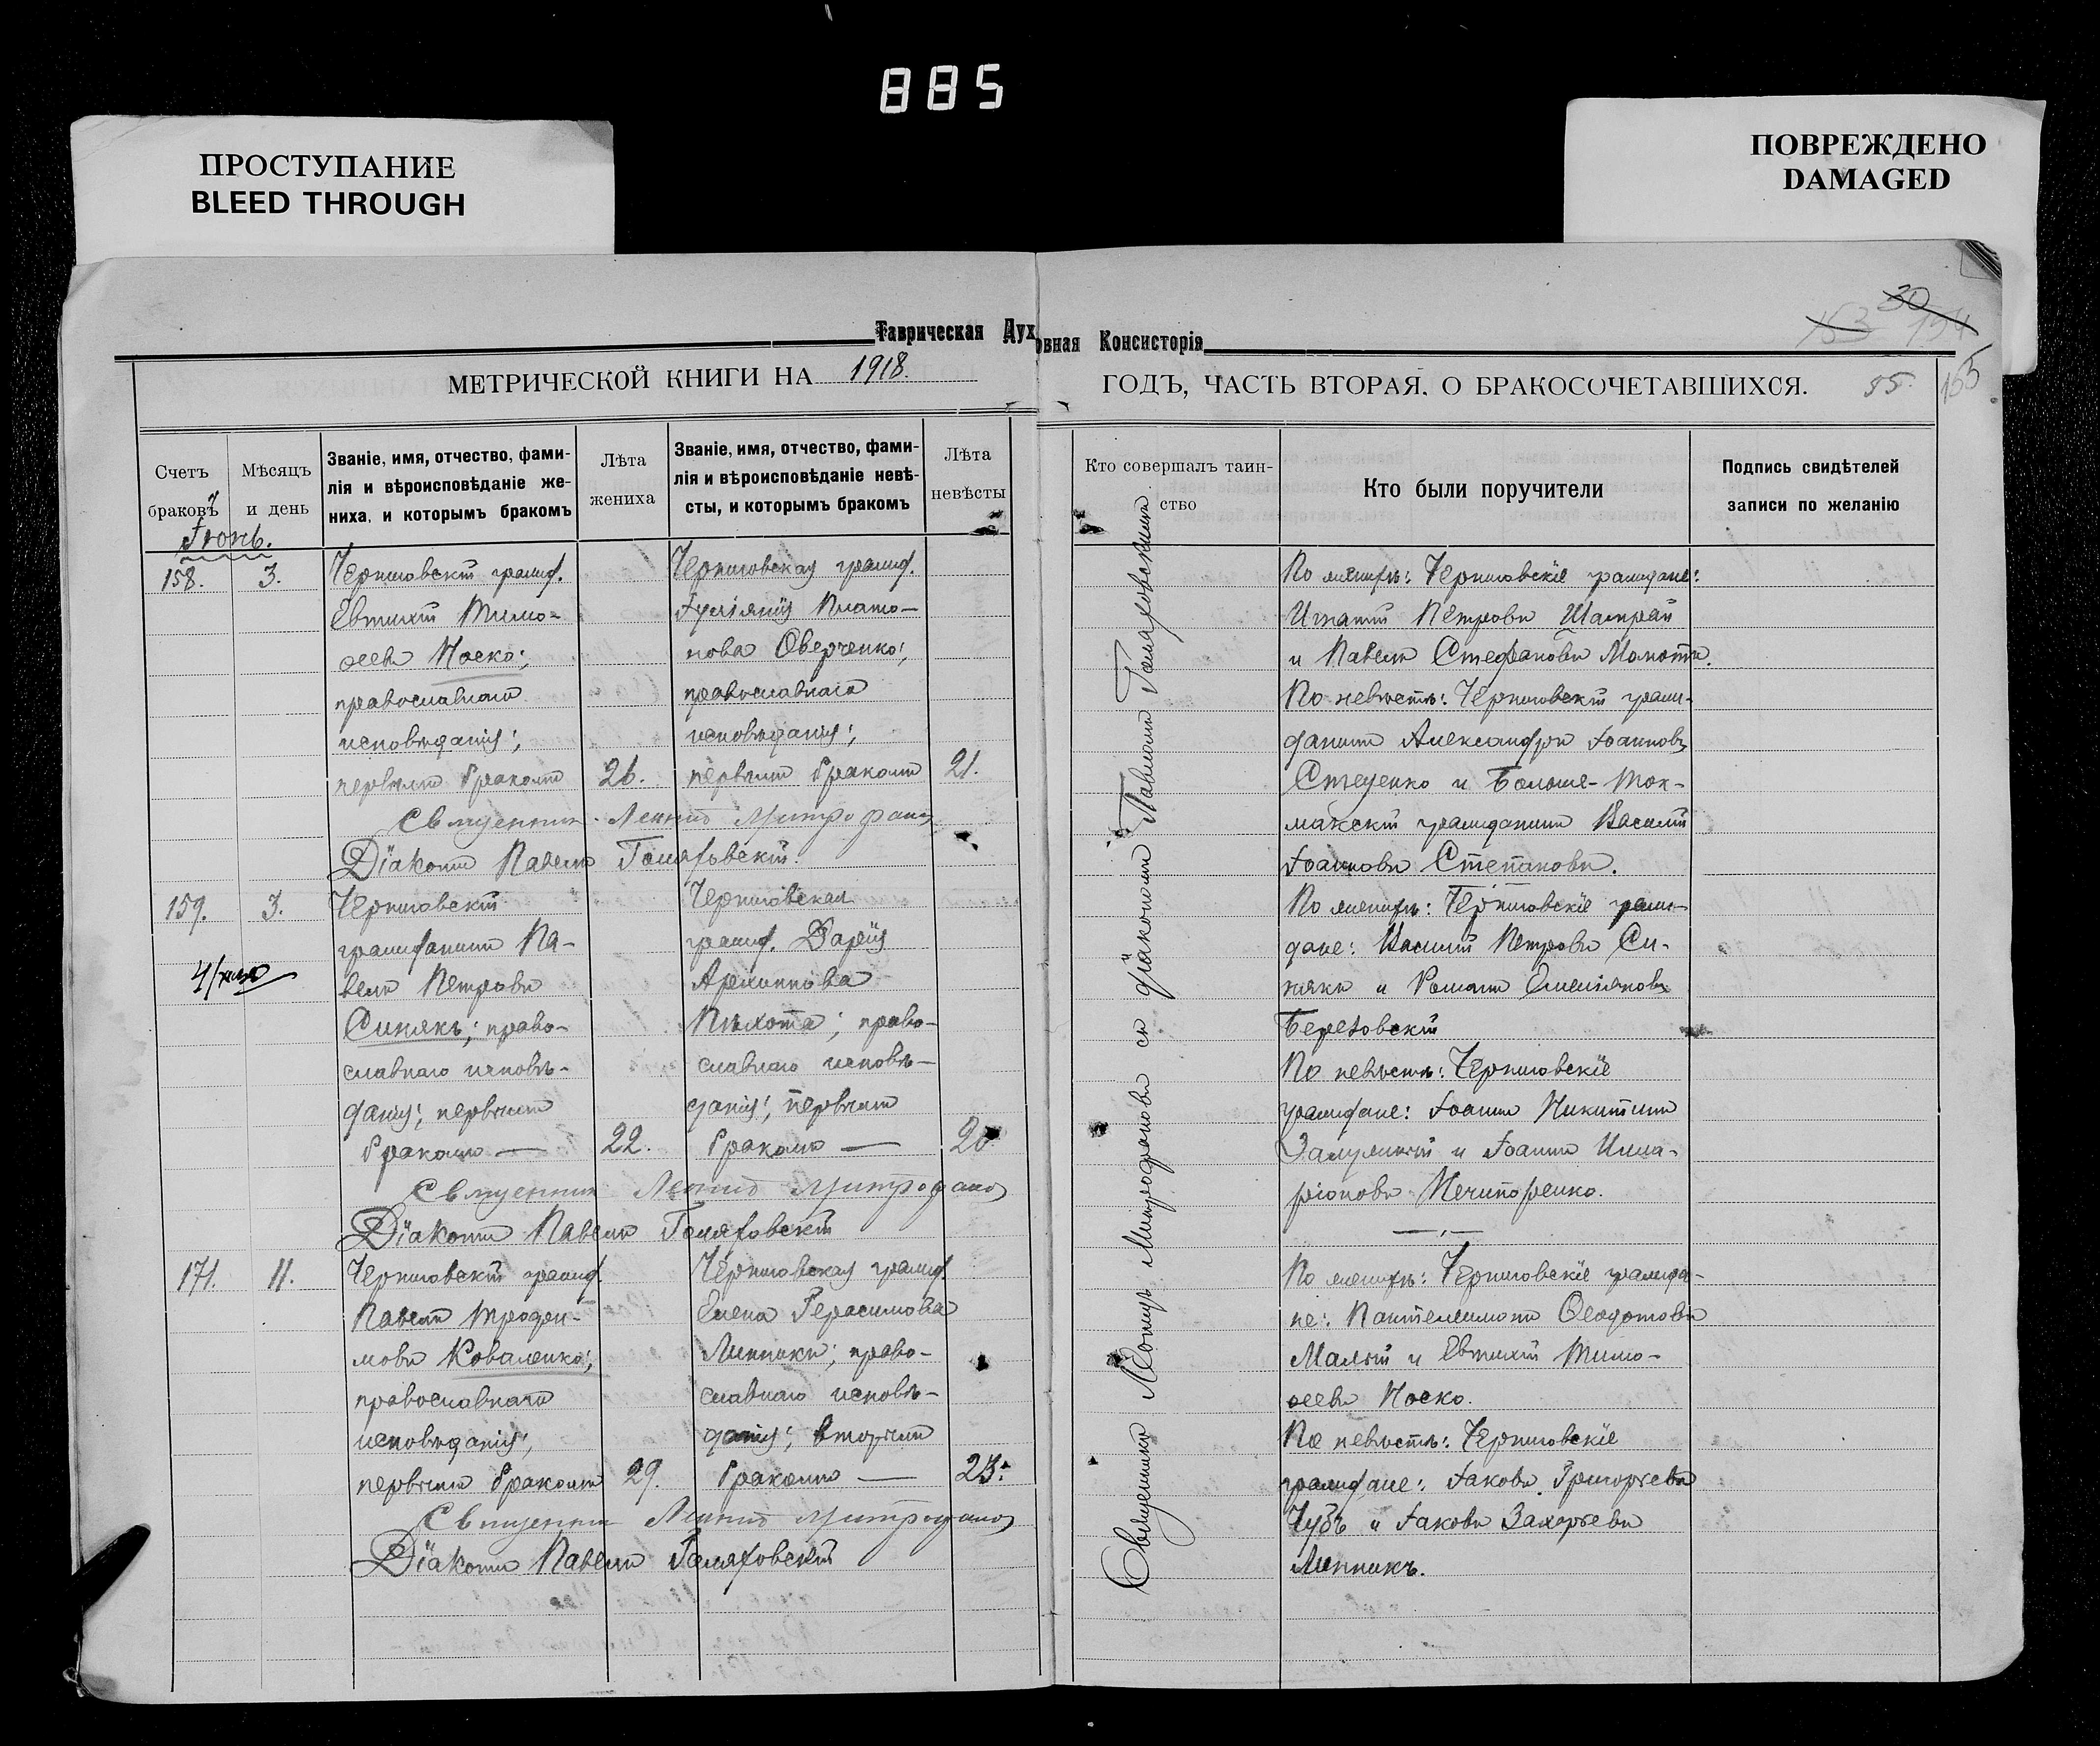 885
ПРОСТУПАНИЕ
BLEED THROUGH
ПОВРЕЖДЕНО
DAMAGED
Таврическая Духовная Консисторія
30
153 154
155
МЕТРИЧЕСКОЙ КНИГИ НА 1918.
ГОДЪ, ЧАСТЬ ВТОРАЯ, О БРАКОСОЧЕТАВШИХСЯ. 55.
Счетъ браковъ
Мѣсяцъ и день
Званіе, имя, отчество, фами-
лія и вѣроисповѣданіе же-
ниха, и которымъ бракомъ
Лѣта жениха
Званіе, имя, отчество, фами-
лія и вѣроисповѣданіе невѣ-
сты, и которымъ бракомъ
Лѣта невѣсты
Кто совершалъ таин-
ство
Кто были поручители
Подпись свидѣтелей
записи по желанію
Іюнь.
158. 3.
Черниговскій гражд.
Евтихій Тимо-
ѳеевъ Носко;
православнаго
исповѣданія;
первымъ бракомъ 26.
Черниговская гражд.
Іуліанія Плато-
нова Оверченко;
православнаго
исповѣданія;
первымъ бракомъ 21.
Священникъ Леонид Митрофанов
Діаконъ Павелъ Гомяховскій.
159. 3.
Черниговскій
гражданинъ Па-
велъ Петровъ
Синякъ; право-
славнаго исповѣ-
данія; первымъ
бракомъ — 22.
Черниговская
гражд. Дарія
Архиппова
Пѣхота; право-
славнаго исповѣ-
данія; первымъ
бракомъ — 20
Священник Леонид Митрофанов
Діаконъ Павелъ Гомяховскій
171. 11.
Черниговскій гражд.
Павелъ Трофи-
мовъ Коваленко;
православнаго
исповѣданія;
первымъ бракомъ 29.
Черниговская гражд.
Елена Герасимова
Линникъ; право-
славнаго исповѣ-
данія; вторымъ
бракомъ — 23.
Священник Леонид Митрофанов
Діаконъ Павелъ Гомяховскій
Священникъ Леонидъ Митрофановъ съ діакономъ Павломъ Гомяховскимъ
По женихѣ: Черниговскіе граждане:
Игнатій Петровъ Шамрай
и Павелъ Стефановъ Момотъ.
По невѣстѣ: Черниговскій граж-
данинъ Александръ Іоанновъ
Стеценко и Больше-Ток-
макскій гражданинъ Василій
Іоанновъ Степановъ.
По женихѣ: Черниговскіе граж-
дане: Василій Петровъ Си-
някъ и Романъ Емеліановъ
Березовскій
По невѣстѣ: Черниговскіе
граждане: Іоаннъ Никитинъ
и Іоаннъ Илла-
ріоновъ Нечипоренко.
По женихѣ: Черниговскіе гражда-
не: Пантелеимонъ Ѳеодотовъ
Малый и Евтихій Тимо-
ѳеевъ Носко.
По невѣстѣ: Черниговскіе
граждане: Іаковъ Григорьевъ
Чубъ и Іаковъ Захарьевъ
Линникъ.